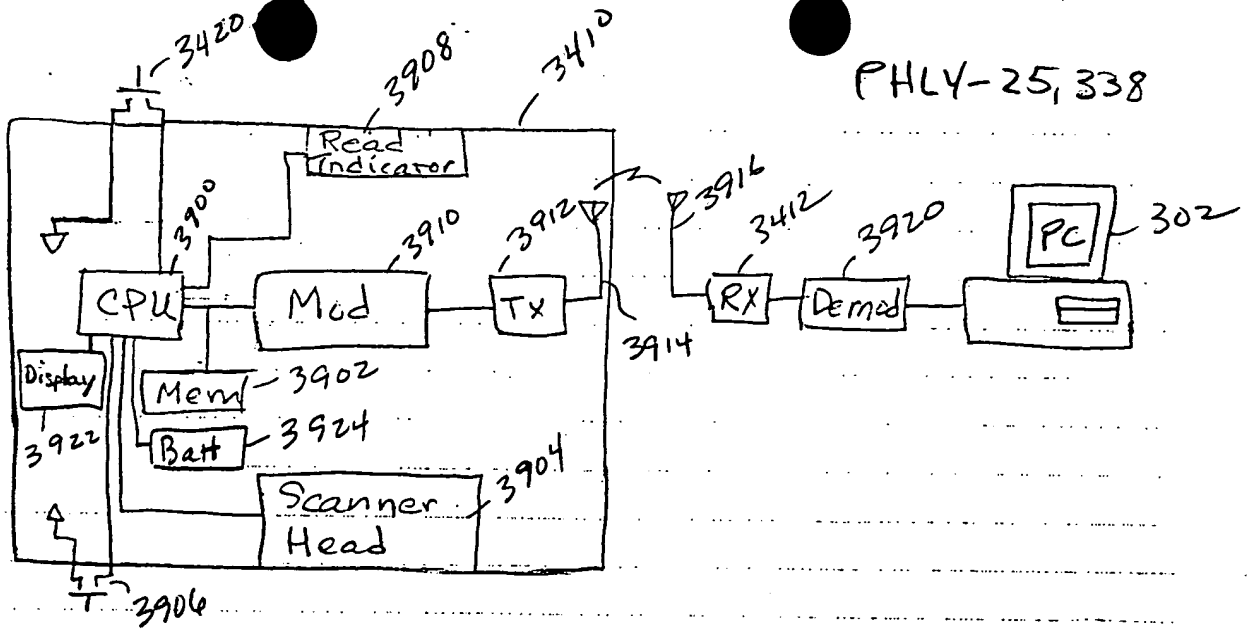 3420
3908
3410
PHLY-25,338
Read
Indicator
3900
3910
3912
3916
3412
3920
302
PC
CPU
Mod
TX
RX
Demod
3914
Display
Mem
3902
3922
Batt
3924
3904
Scanner
Head
3906